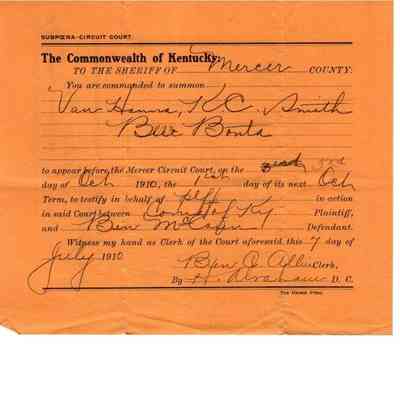 SUBPŒNA-CIRCUIT COURT.
The Commonwealth of Kentucky:
TO THE SHERIFF OF Mercer COUNTY:
You are commanded to summon
Van Hanna, K.C. Smith
Bonta
to appear before the Mercer Circuit Court, on the 3rd
day of Oct 1910, the 1st day of its next Oct
Term, to testify in behalf of Plff in action
in said Court between Comth of Ky Plaintiff,
and Ben Defendant.
Witness my hand as Clerk of the Court aforesaid, this 7 day of
July 1910 Ben C. Allin Clerk,
By D. C.